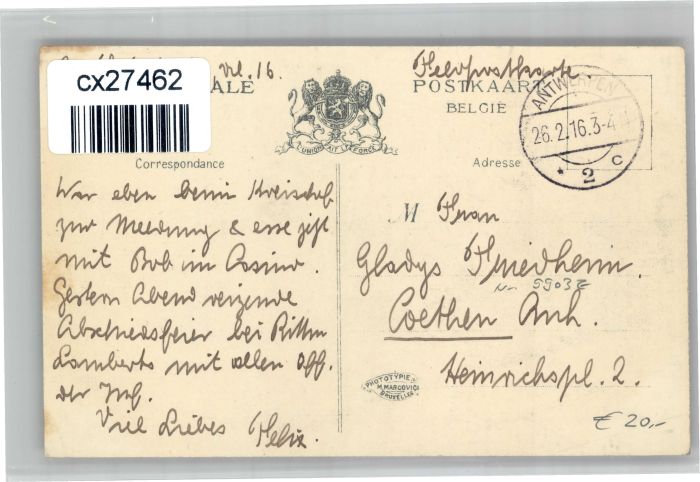 cx27462
16.
Feldpostkarte
ALE
POSTKAART
BELGIË
L'UNION FAIT LA FORCE
ANTWERPEN
26.2.16.3-4
* 2 C
Correspondance
Adresse
War eben beim Kreischef
zur Meldung & esse jetzt
mit Bob im Casino.
Gestern Abend reizende
Abschiedsfeier bei Rittm.
Lamberts mit allen Off.
der Insp.
Viel Liebes Felix.
M Frau
Gladys Friedheim.
Nr. 59032
Coethen Anh.
Heinrichspl. 2.
PHOTOTYPIE
M. MARCOVICI
BRUXELLES
€ 20,-